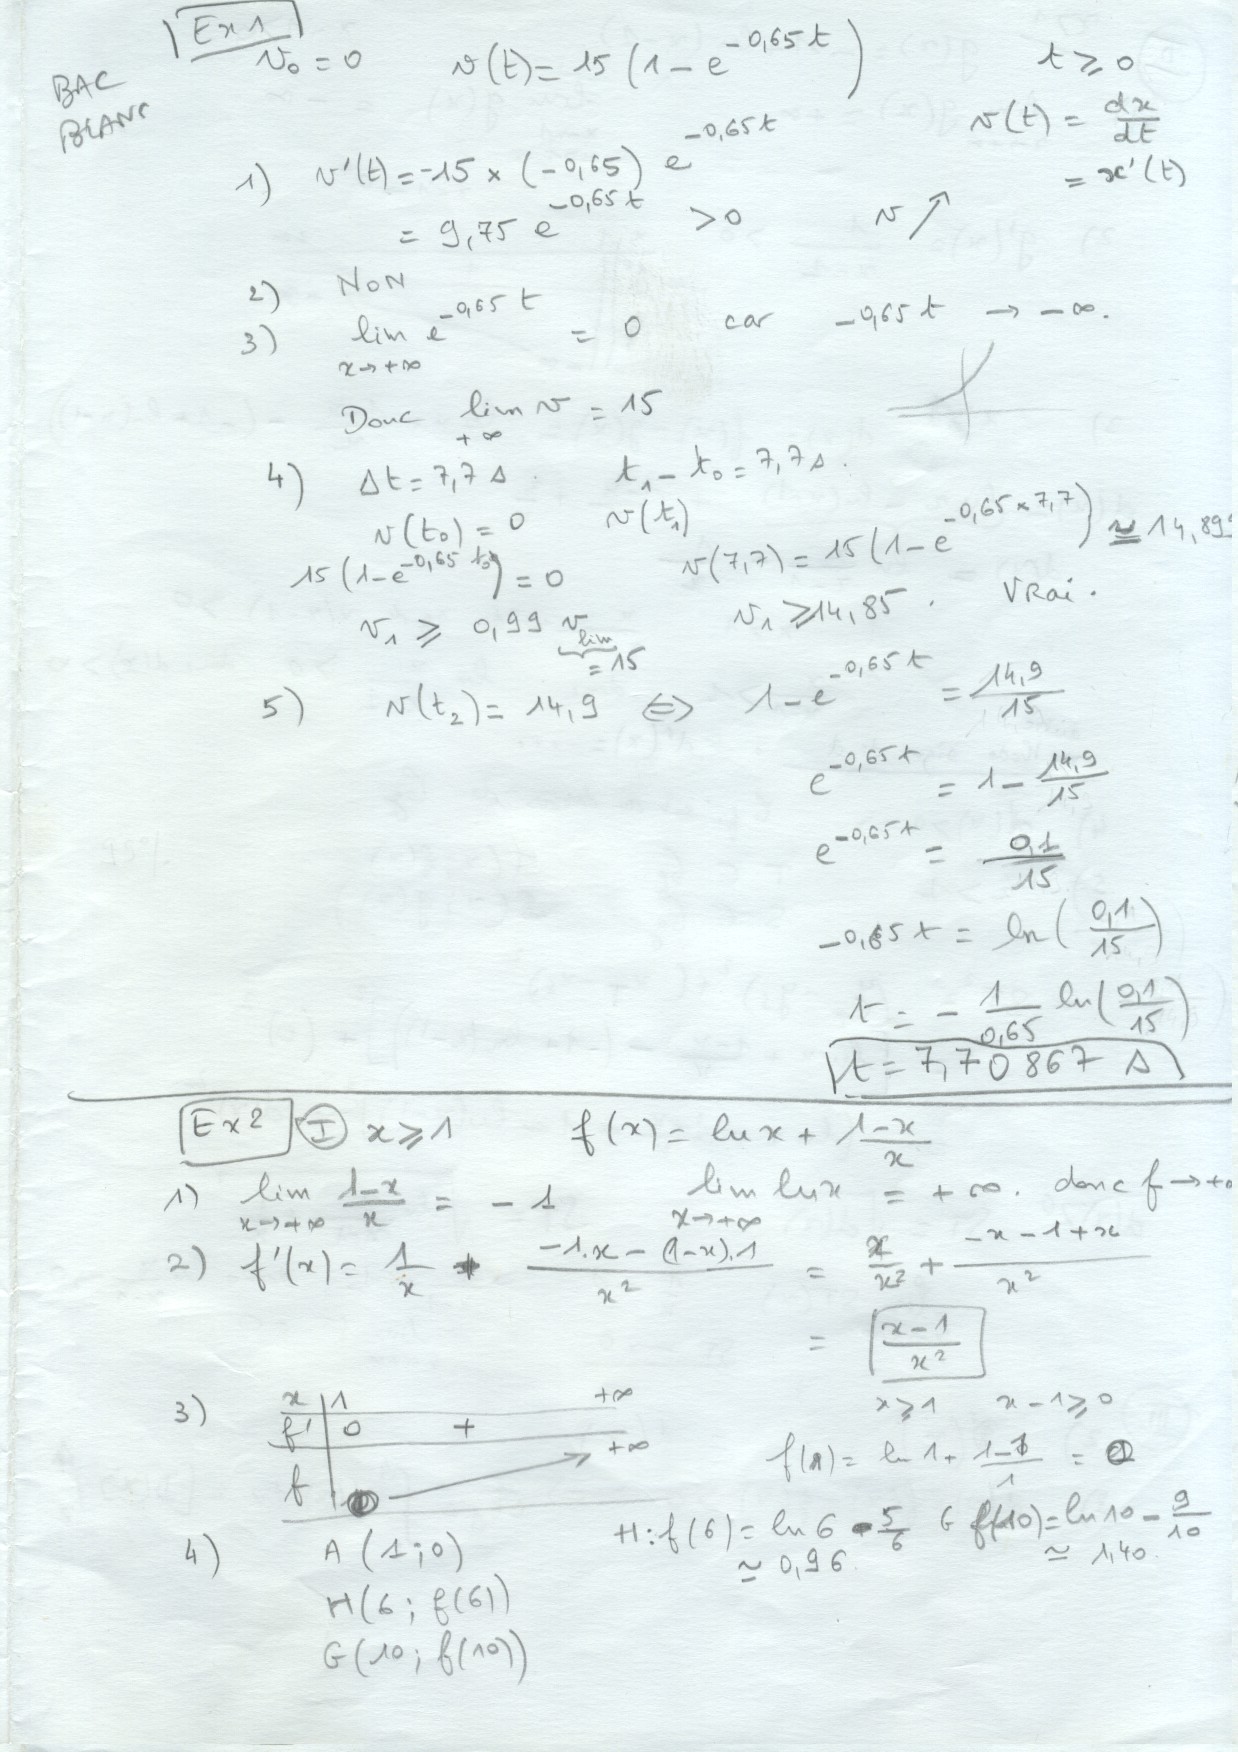 Ex 1
BAC BLANC
v₀ = 0 v(t) = 15 (1 - e^{-0,65 t}) t ≥ 0
v(t) = dx/dt
= x'(t)
1) v'(t) = -15 × (-0,65) e^{-0,65 t}
= 9,75 e^{-0,65 t} > 0 v ↗
2) NON
3) lim_{x→+∞} e^{-0,65 t} = 0 car -0,65 t → -∞.
Donc lim_{+∞} v = 15
4) Δt = 7,7 s. t₁ - t₀ = 7,7 s.
v(t₀) = 0 v(t₁)
15 (1 - e^{-0,65 t₀}) = 0 v(7,7) = 15 (1 - e^{-0,65 × 7,7}) ≃ 14,899
v₁ ≥ 0,99 v_{lim} v₁ ≥ 14,85. VRai.
= 15
5) v(t₂) = 14,9 ⇔ 1 - e^{-0,65 t} = 14,9/15
e^{-0,65 t} = 1 - 14,9/15
e^{-0,65 t} = 0,1/15
-0,65 t = ln(0,1/15)
t = - 1/0,65 ln(0,1/15)
t = 7,70867 s
Ex 2 I x ≥ 1 f(x) = ln x + (1-x)/x
1) lim_{x→+∞} (1-x)/x = -1 lim_{x→+∞} ln x = +∞. donc f → +∞
2) f'(x) = 1/x + (-1.x - (1-x).1)/x² = x/x² + (-x - 1 + x)/x²
= (x-1)/x²
3) x | 1 +∞ x ≥ 1 x - 1 ≥ 0
f' | 0 +
f | 0 → +∞ f(1) = ln 1 + (1-1)/1 = 0
4) A (1 ; 0) H : f(6) = ln 6 - 5/6 G f(10) = ln 10 - 9/10
≃ 0,96. ≃ 1,40.
H (6 ; f(6))
G (10 ; f(10))